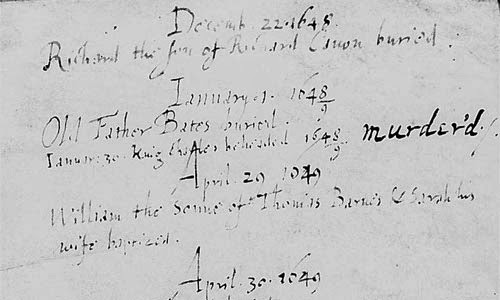 Decemb. 22. 1648.
Richard the son of Richard buried.
January 1. 1648/9
Old Father Bates buried.
Januar. 30. King Charles beheaded 1648/9 murder'd.
April. 29 1649
William the Sonne of Thomas Barnes & Sarah his
wife baptized.
April. 30. 1649